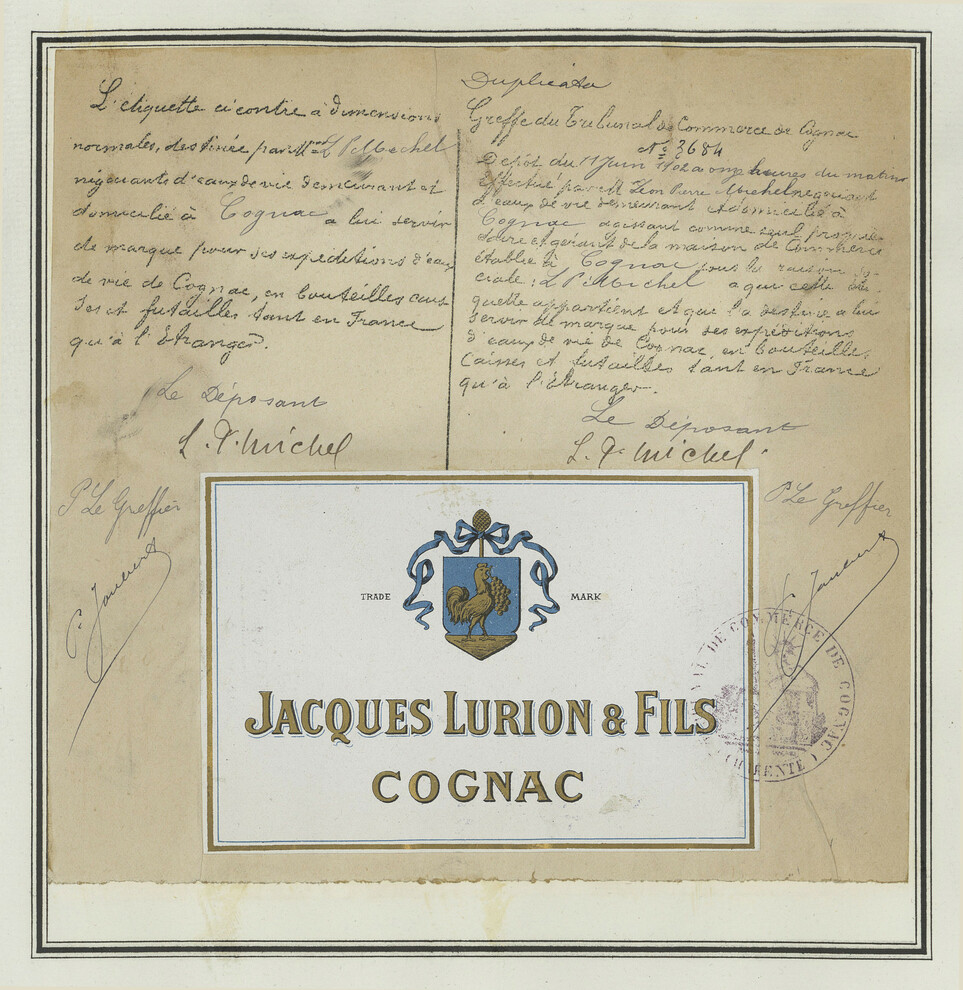 L'étiquette ci contre à dimensions
normales, destinée par Mr L P Michel
négociants d'eaux de vie demeurant et
domicilié à Cognac a lui servir
de marque pour ses expéditions d'eaux
de vie de Cognac, en bouteilles cais
ses et futailles tant en France
qu'à l'Etranger.
Le Déposant
L. P. Michel
P'Le Greffier
Duplicata
Greffe du Tribunal de Commerce de Cognac
No 3684
Depôt du 11 Juin 1902 a onze heures du matin
effectué par M Léon Pierre Michel negociant
d'eaux de vie demeurant et domicilié à
Cognac agissant comme seul proprié-
taire et gérant de la maison de Commerce
établie à Cognac sous la raison so-
ciale: L P Michel a qui cette éti-
quette appartient et que l'a destine a lui
servir de marque pour ses expéditions
d'eaux de vie de Cognac, en bouteilles,
caisses et futailles tant en France
qu'à l'Etranger.
Le Déposant
L. P. Michel.
P'Le Greffier
TRADE MARK
JACQUES LURION & FILS
COGNAC
DE COMMERCE DE COGNAC
(CHARENTE)